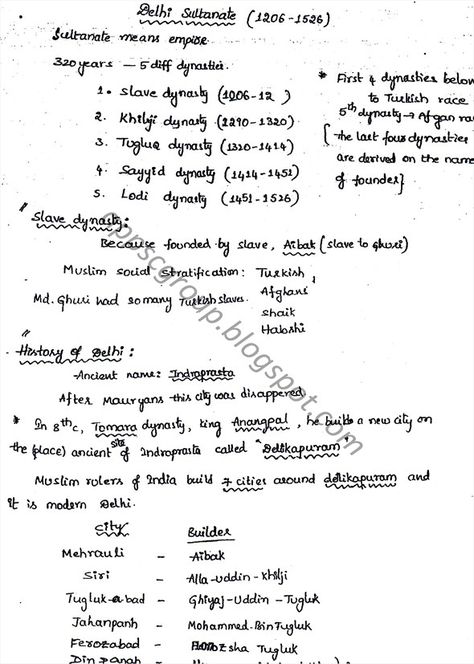 Delhi Sultanate (1206-1526)
Sultanate means empire
320 years — 5 diff dynasties.
1. Slave dynasty (1206-12 )
2. Khilji dynasty (1290-1320)
3. Tugluq dynasty (1320-1414)
4. Sayyid dynasty (1414-1451)
5. Lodi dynasty (1451-1526)
* First 4 dynasties below
to Turkish race
5th dynasty → Afgan ra
{ The last four dynasties
are derived on the name
of founder}
" Slave dynasty:
Because founded by slave, Aibak (slave to Ghuri)
Muslim social stratification: Turkish,
Afghani
Md. Ghuri had so many Turkish slaves.
Shaik
Habshi
" History of Delhi :
Ancient name: Indraprasta
After Mauryans this city was disappered
* In 8th c, Tomara dynasty, king Anangpal, he builds a new city on
the (place) ancient site of Indraprasta called "Delikapuram"
Muslim rulers of India build 7 cities around delikapuram and
it is modern Delhi.
City Builder
Mehrauli - Aibak
Siri - Alla-uddin-Khilji
Tugluk-abad - Ghiyaj-Uddin-Tugluk
Jahanpanh - Mohammed.Bin Tugluk
Ferozabad - Firozsha Tugluk
Din panah -
oppscgroup.blogspot.com